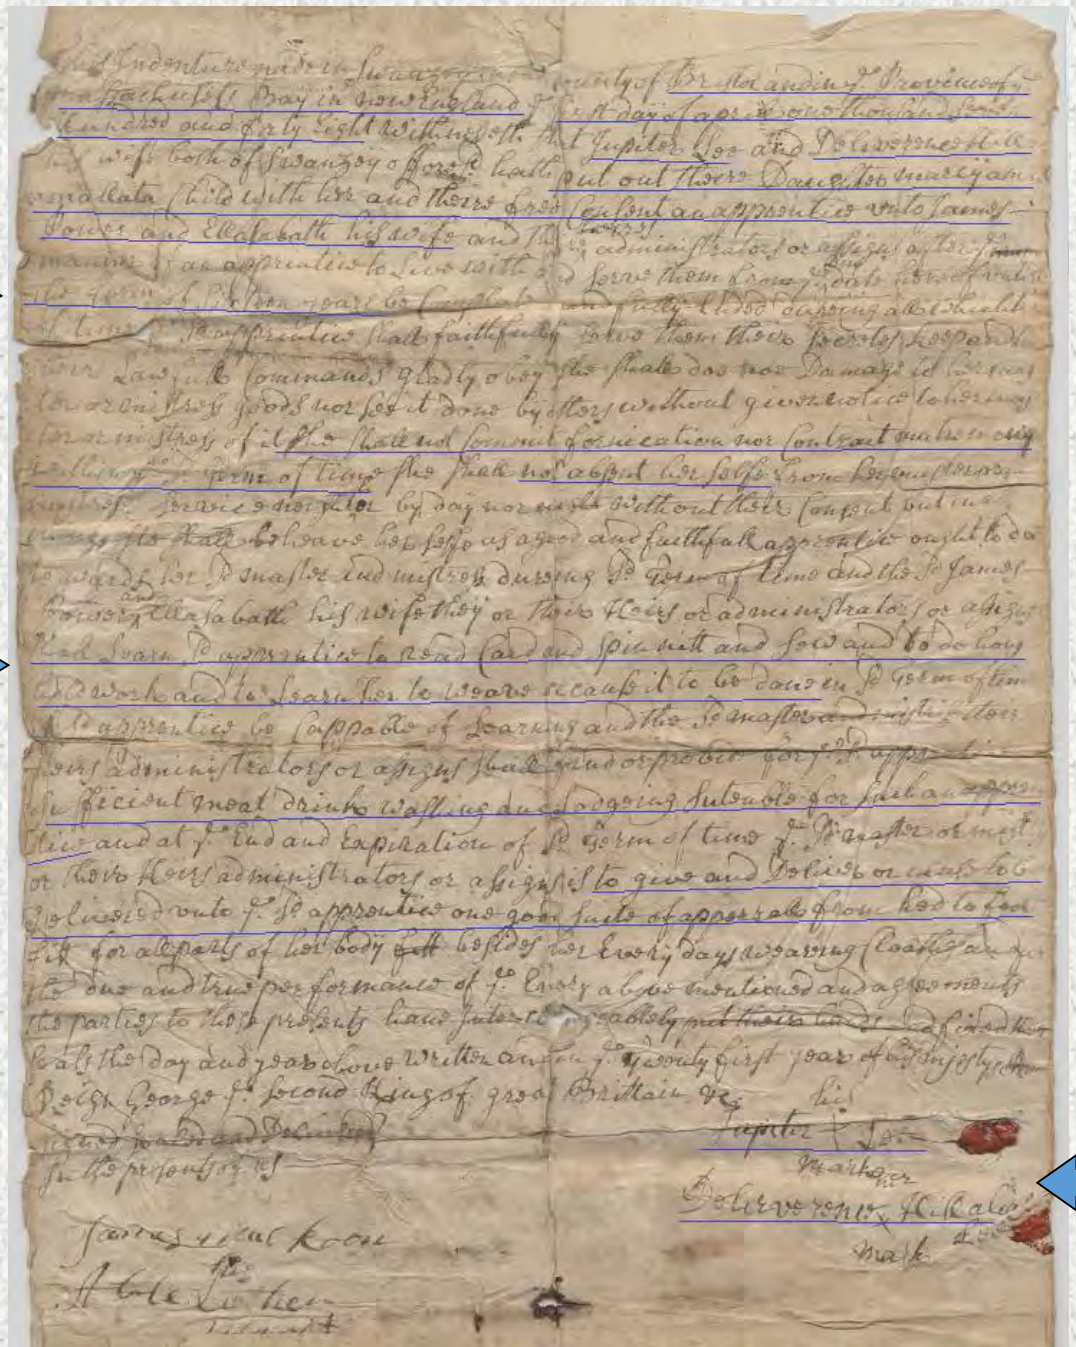 This Indenture made in Swanzey in the County of Bristol and in ye Province of ye
Massachusetts Bay in new England ye first day of april one thousand Seven
hundred and forty Eight Witnesseth that Jupiter Lee and Deliverence
his wife both of Swanzey offorsd hath put out theire Daughter maryann
a mallata Child with her and theire free Consent an apprentice unto James
Bowers and Ellasabath his wife and theire administrators or assigns after
manner of an apprentice to Live with and Serve them from ye date hereof untill
the term of Sixteen years be Compleat and fully Ended during all which
of time sd apprentice shall faithfully Serve them their Secrets keep and
theirs Lawfull Commands gladly obey she shall doe noe Damage to her mas
ter or mistress goods nor see it done by others without giveing notice to her mas
ter or mistress of it she shall not Commit fornication nor Contract matrimony
within sd term of time she shall not absent her selfe from her master or
mistress Service neighter by day nor night without their Consent but in
she shall beheave her selfe as a good and faithfull apprentice ought to do
towards her sd master and mistress dureing sd Term of time and the sd James
Bowers and Ellasabath his wife they or their Heirs or administrators or assigns
shall Learn sd apprentice to read Card and Spin nitt and sew and to do hous
hold work and to Learn her to weave or cause it to be done in sd Term of time
if sd apprentice be Cappable of Learning and the sd master and mistress their
heirs administrators or assigns shall find or provide for ye sd apprentice
Sufficient meat drink washing and Lodgeing Suteable for such an appren
tice and at ye End and Expiration of sd Term of time ye sd master or mist
or their Heirs administrators or assigns is to give and Deliver or cause to be
Delivered unto ye sd apprentice one good Sute of apperrall from hed to foot
fitt for all parts of her body besides her Every days wearing Cloathes and
the due and true performance of ye Every above mentioned and agreements
the parties to these presents have Interchangeably put their hands and fixed their
Seals the day and year above written and in ye Twenty first year of his majestys
Reign George ye Second King of great Brittain &c.
his
Signed Sealed and Delivered
Jupiter Lee
In the presents of us
mark
her
Deliverence
mark
James
Abele
his